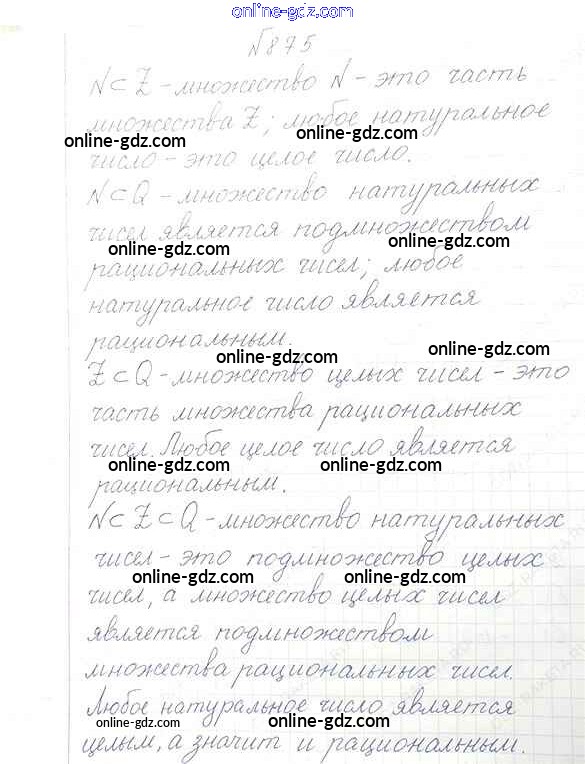 online-gdz.com
№875
N⊂Z - множество N - это часть
множества Z; любое натуральное
online-gdz.com online-gdz.com
число - это целое число.
N⊂Q - множество натуральных
чисел является подмножеством
online-gdz.com online-gdz.com
рациональных чисел; любое
натуральное число является
рациональным.
online-gdz.com online-gdz.com
Z⊂Q - множество целых чисел - это
часть множества рациональных
чисел. Любое целое число является
online-gdz.com online-gdz.com
рациональным.
N⊂Z⊂Q - множество натуральных
чисел - это подмножество целых
online-gdz.com online-gdz.com
чисел, а множество целых чисел
является подмножеством
множества рациональных чисел.
Любое натуральное число является
online-gdz.com online-gdz.com
целым, а значит и рациональным.